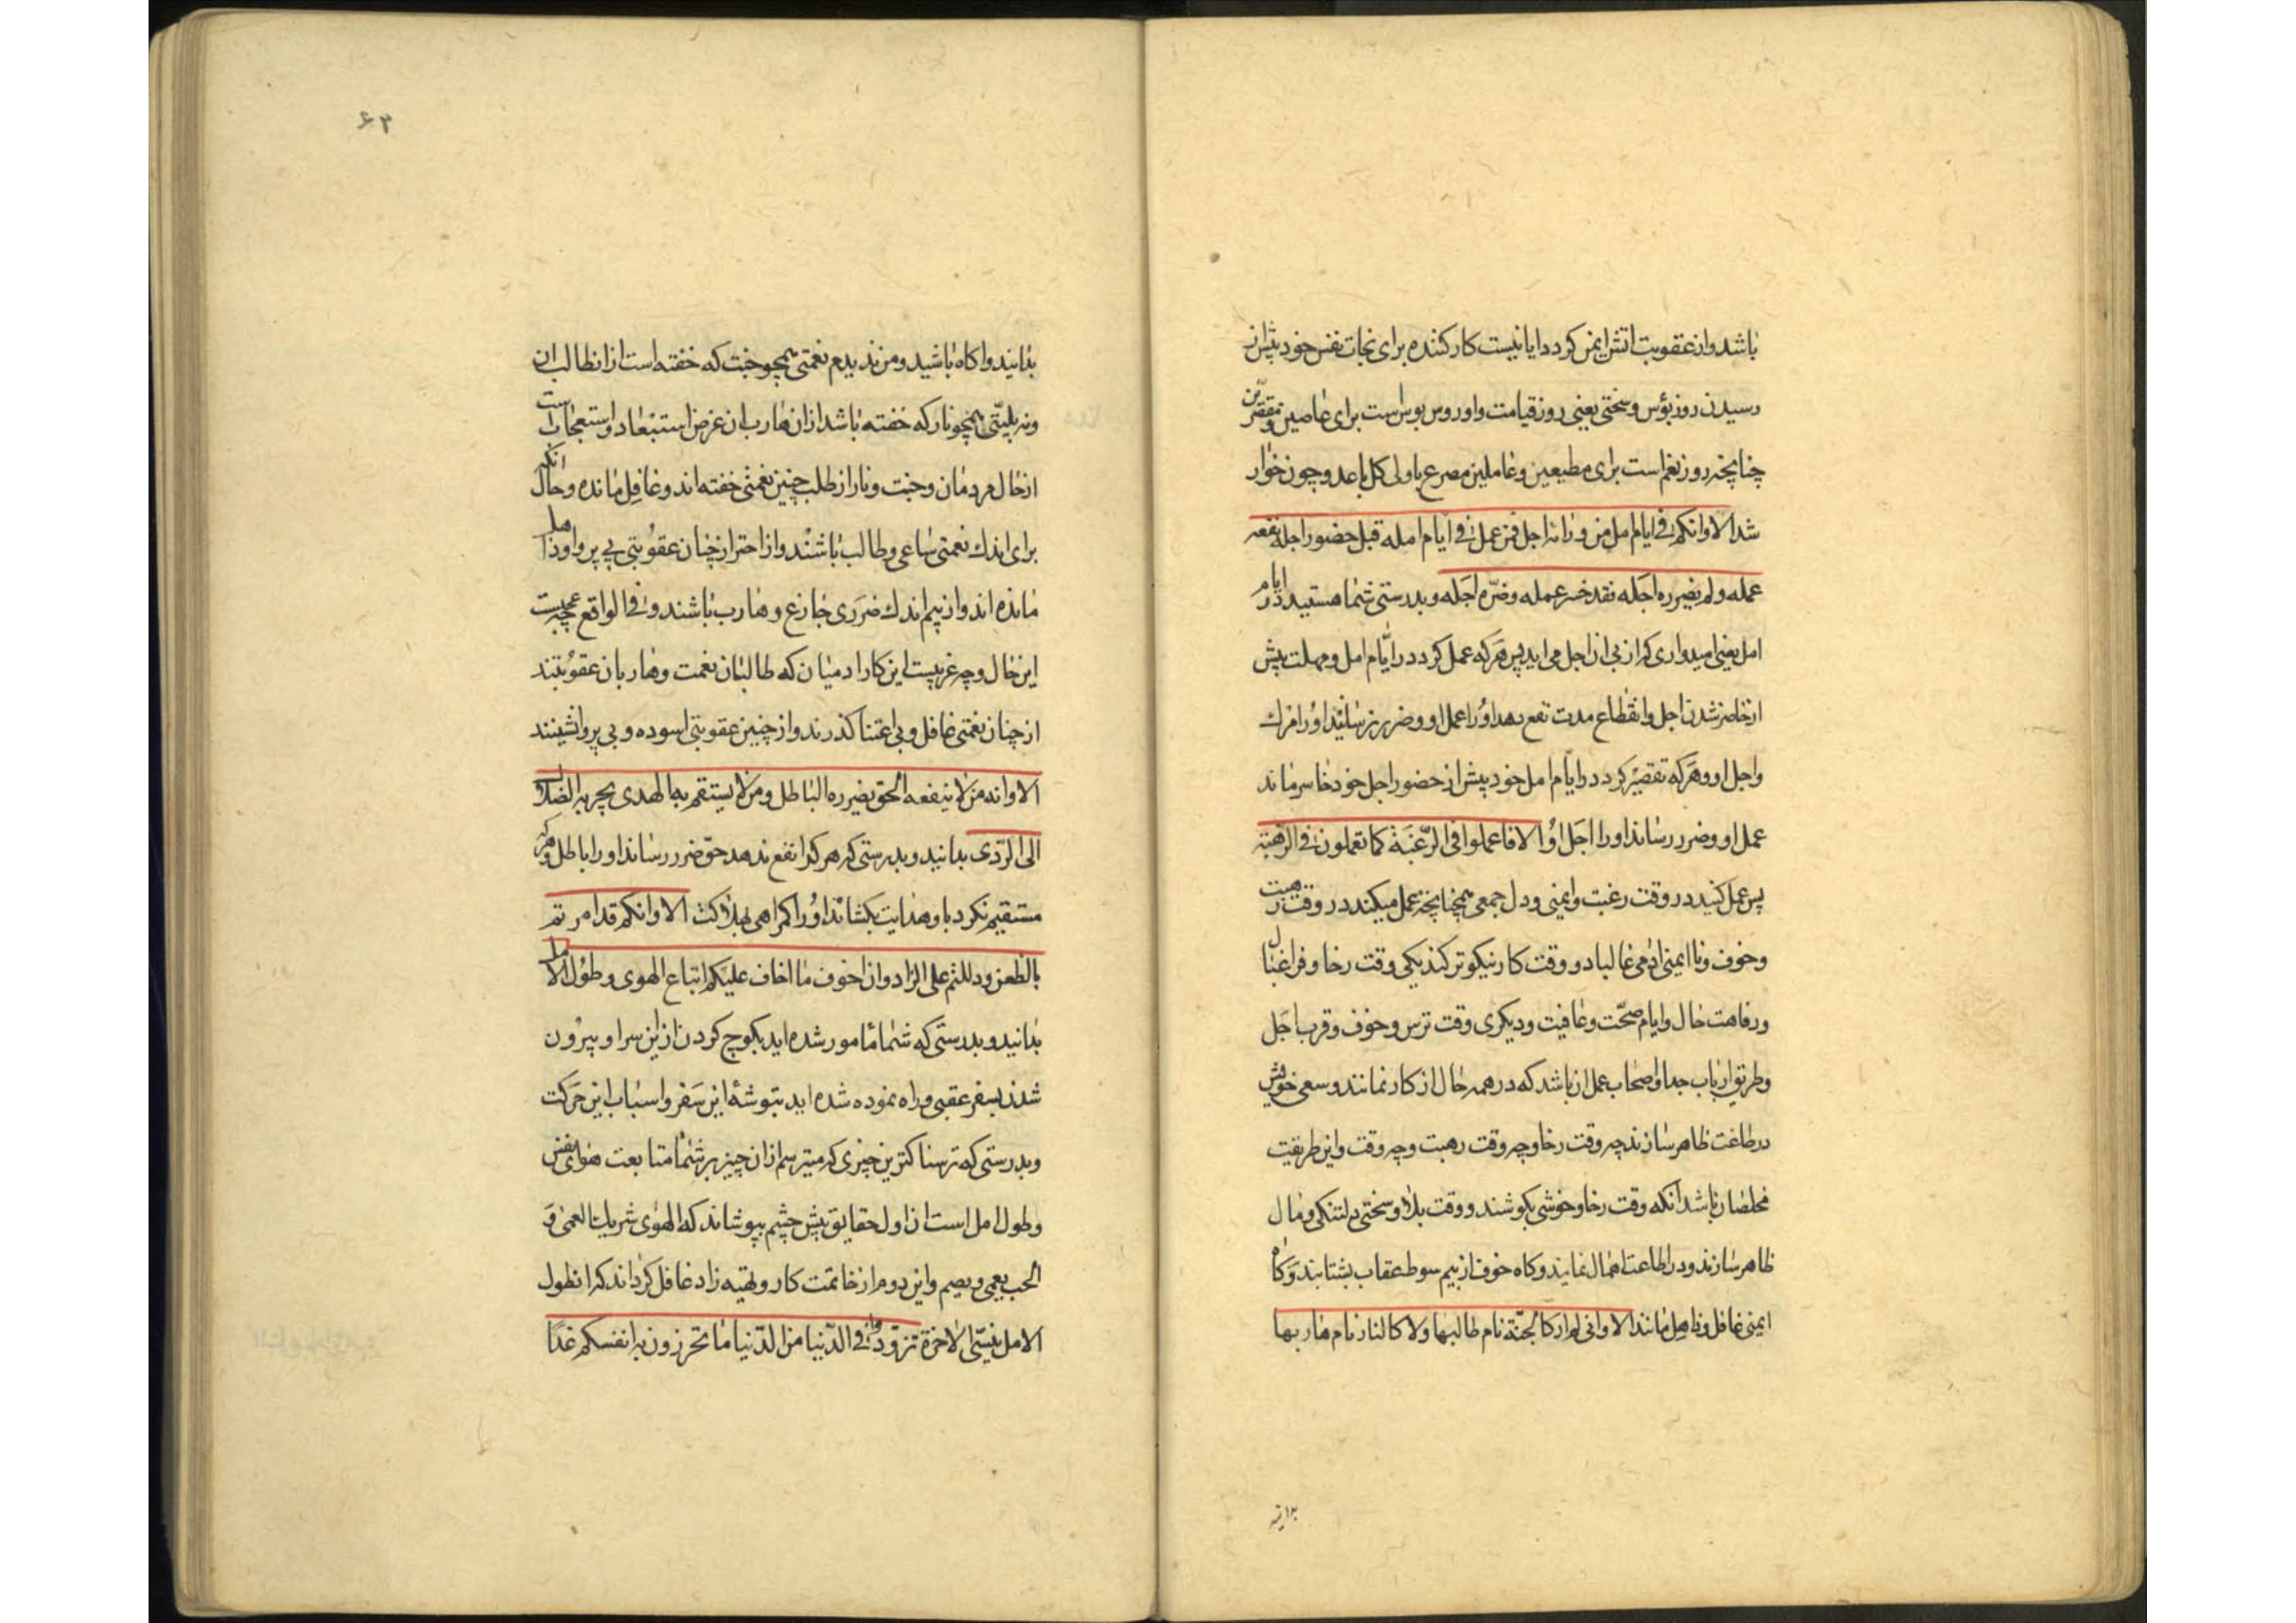 باشد و از عقوبت اتش ایمن کردد ایا نیست کار کننده برای نجات نفس خود پیش از
رسیدن روز بؤس و سختی یعنی روز قیامت و او روس بوس است برای عاصین و مقصرین
چنانچه روز نغم است برای مطیعین و عاملین مصرع باولی کل باعد و چون خوار
شد الا و انکم فی ایام امل من ورائه اجل فمن عمل فی ایام امله قبل حضور اجله نفعه
عمله و لم یضرره اجله نقد خسر عمله و ضرّه اجله و بدرستی شما هستید در ایام
امل یعنی امیدواری که از پی ان اجل می اید پس هر که عمل کرد در ایّام امل و مهلت پیش
از حاضر شدن اجل و انقطاع مدت نفع بدهد او را عمل او و ضرر نرساند او را مرک
و اجل او و هر که تقصیر کرد در ایّام امل خود پیش از حضور اجل خود خاسر ماند
عمل او و ضرر رساند او را اجل او الا فاعملوا فی الرّغبة کما تعملون فی الرّهبة
پس عمل کنید در وقت رغبت و ایمنی و دل جمعی همچنانچه عمل میکنید در وقت رهبت
و خوف و نا ایمنی ادمی غالبا دو وقت کار نیکوتر کند یکی وقت رخا و فراغ بال
و رفاهت حال و ایام صحّت و عافیت و دیکری وقت ترس و خوف و قرب اجل
و طریق ارباب جد و اصحاب عمل ان باشد که در همه حال از کار نمانند و سعی خویش
در طاعت ظاهر سازند چه وقت رخا و چه وقت رهبت و چه وقت و این طریقیت
مخلصان باشد انکه وقت رخا و خوشی بکوشند و وقت بلا و سختی دلتنکی و ملال
ظاهر سازند و در اطاعت اهمال نمایند و کاه خوف از بیم سوط عقاب بشتابند و کاه
ایمنی غافل و ذاهل مانند الا و انی لم ار کالجنّة نام طالبها و لا کالنار نام هاربها
بدانید
۶۲
بدانید و اکاه باشید و من ندیدم نعمتی همچو جنت که خفته است از ان طالب ان
و نه بلیّتی همچو نار که خفته باشد از ان هارب ان غرض استبعاد و استعجاب است
از حال مردمان و جنت و نار از طلب چنین نعمتی خفته اند و غافل مانده و حال انکه
برای اندک نعمتی ساعی و طالب باشند و از احتراز چنان عقوبتی بی پروا و ذاهل
مانده اند و از بیم اندک ضرری جازع و هارب باشند و فی الواقع عجیبست
این حال و چه غریبست این کار ادمیان که طالبان نعمت و هاربان عقوبتند
از چنان نعمتی غافل و بی اعتنا کذرند و از چنین عقوبتی اسوده و بی پروا نشینند
الا و انه من لا ینفعه الحق یضرره الباطل و من لا یستقم به الهدی یجر به الضلال
الی الرّدی بدانید و بدرستی که هر کرا نفع ندهد حقّ ضرر رساند او را باطل و هر که
مستقیم نکردد باو هدایت بکشاند او را کمراهی بهلاکت الا و انکم قد امرتم
بالظعن و دللتم علی الزاد و ان اخوف ما اخاف علیکم اتباع الهوی و طول الامل
بدانید و بدرستی که شما مامور شده اید بکوچ کردن از این سرا و بیرون
شدن بسفر عقبی و راه نموده شده اید بتوشهٔ این سفر و اسباب این حرکت
و بدرستی که ترسناکترین چیزی که میترسم از ان چیز بر شما متابعت هوای نفس
و طول امل است ان اول حقایق پیش چشم بپوشاند که الهوی شریک العمی و
الحب یعمی و یصم و این دوم از خاتمت کار و تهیه زاد غافل کرداند که ان طول
الامل ینسی الاخرة تزوّدوا فی الدّنیا من الدّنیا ما تحرزون به انفسکم غدًا